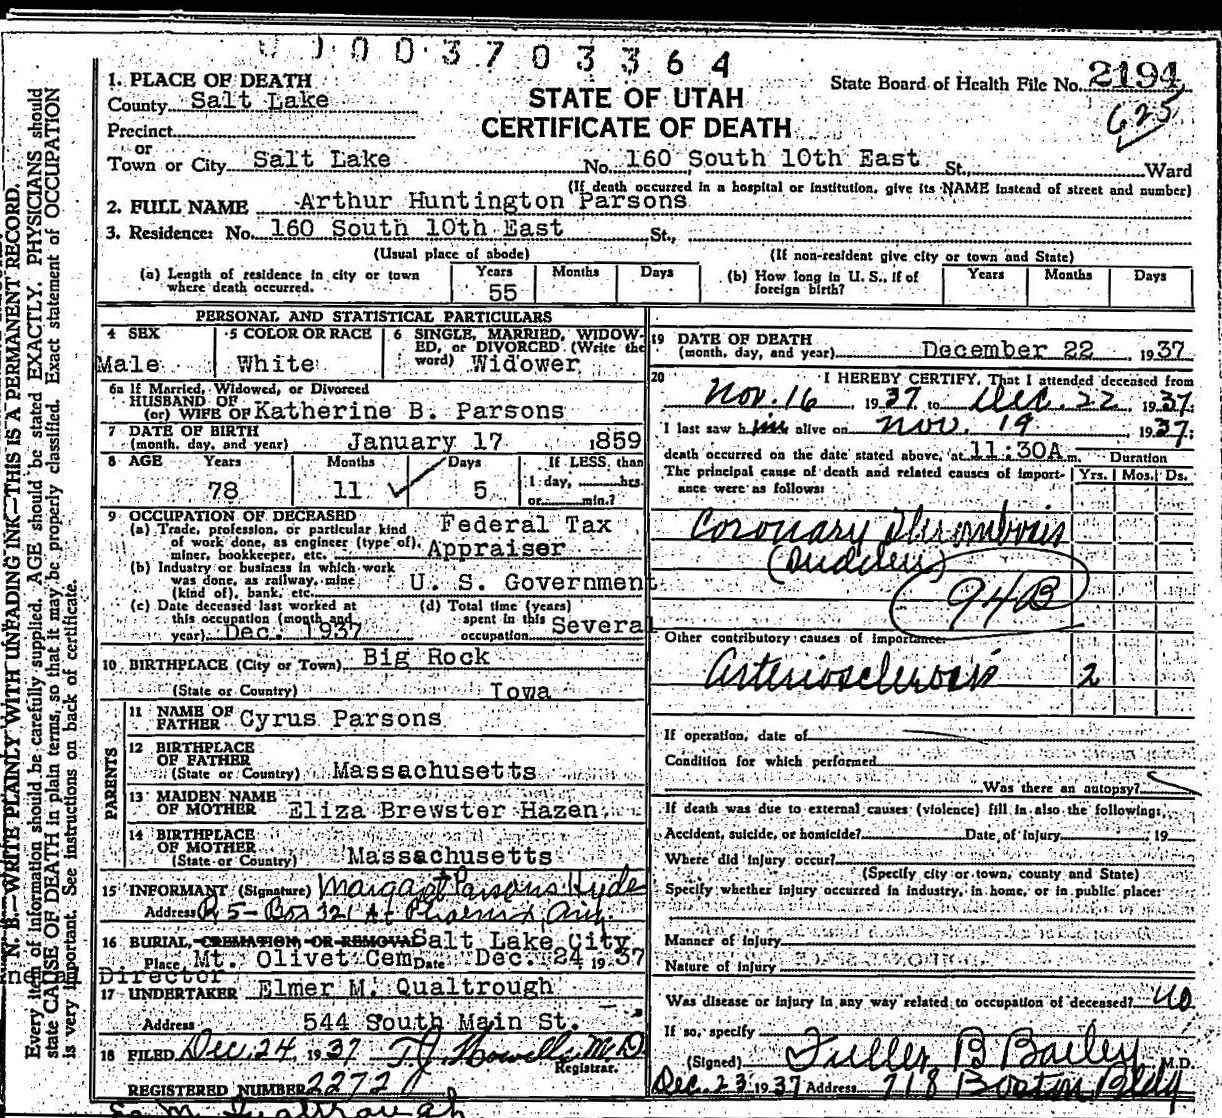 0000370 3364
1. PLACE OF DEATH
County Salt Lake
STATE OF UTAH
State Board of Health File No. 2194
625
Precinct
CERTIFICATE OF DEATH
or
Town or City Salt Lake No. 160 South 10th East St., Ward
(If death occurred in a hospital or institution, give its NAME instead of street and number)
2. FULL NAME Arthur Huntington Parsons
3. Residence: No. 160 South 10th East St.,
(Usual place of abode) (If non-resident give city or town and State)
(a) Length of residence in city or town where death occurred. Years 55 Months Days
(b) How long in U. S., if of foreign birth? Years Months Days
PERSONAL AND STATISTICAL PARTICULARS
4 SEX Male
5 COLOR OR RACE White
6 SINGLE, MARRIED, WIDOWED, or DIVORCED (Write the word) Widower
6a If Married, Widowed, or Divorced
HUSBAND OF
(or) WIFE OF Katherine B. Parsons
7 DATE OF BIRTH
(month, day, and year) January 17 1859
8 AGE Years 78 Months 11 Days 5
If LESS than
1 day, hrs.
or min.?
9 OCCUPATION OF DECEASED
(a) Trade, profession, or particular kind of work done, as engineer (type of), miner, bookkeeper, etc. Federal Tax Appraiser
(b) Industry or business in which work was done, as railway, mine (kind of), bank, etc. U. S. Government
(c) Date deceased last worked at this occupation (month and year) Dec. 1937
(d) Total time (years) spent in this occupation Several
10 BIRTHPLACE (City or Town) Big Rock
(State or Country) Iowa
PARENTS
11 NAME OF FATHER Cyrus Parsons
12 BIRTHPLACE OF FATHER
(State or Country) Massachusetts
13 MAIDEN NAME OF MOTHER Eliza Brewster Hazen
14 BIRTHPLACE OF MOTHER
(State or Country) Massachusetts
15 INFORMANT (Signature) Margaret Parsons Hyde
Address R 5 - Box 321 At Phoenix, Ariz
16 BURIAL, CREMATION, OR REMOVAL Salt Lake City
Place Mt. Olivet Cem Date Dec. 24 1937
Director
17 UNDERTAKER Elmer M. Qualtrough
Address 544 South Main St.
18 FILED Dec. 24, 1937 T. J. Howells M.D.
Registrar.
REGISTERED NUMBER 2272
19 DATE OF DEATH
(month, day, and year) December 22, 1937
20 I HEREBY CERTIFY, That I attended deceased from
Nov. 16 1937 to Dec. 22 1937
I last saw him alive on Nov. 19 1937;
death occurred on the date stated above, at 11:30A m.
Duration
The principal cause of death and related causes of importance were as follows:
Yrs. Mos. Ds.
Coronary Thrombosis
(Sudden)
94B
Other contributory causes of importance:
Arteriosclerosis 2
If operation, date of
Condition for which performed
Was there an autopsy?
If death was due to external causes (violence) fill in also the following:
Accident, suicide, or homicide? Date of injury 19
Where did injury occur?
(Specify city or town, county and State)
Specify whether injury occurred in industry, in home, or in public place:
Manner of injury
Nature of injury
Was disease or injury in any way related to occupation of deceased? no
If so, specify
(Signed) Fuller B Bailey M.D.
Dec. 23 1937 Address 718 Boston Bldg
N. B.—WRITE PLAINLY WITH UNFADING INK—THIS IS A PERMANENT RECORD.
Every item of information should be carefully supplied. AGE should be stated EXACTLY. PHYSICIANS should
state CAUSE OF DEATH in plain terms, so that it may be properly classified. Exact statement of OCCUPATION
is very important. See instructions on back of certificate.